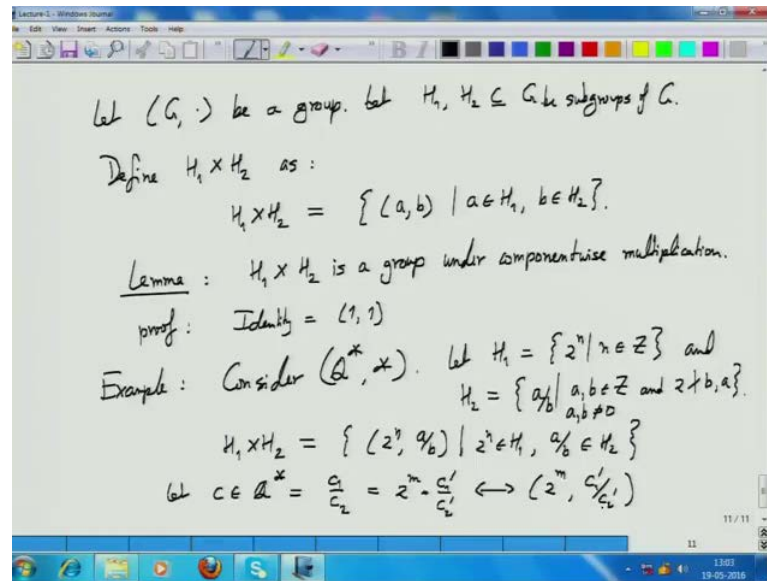 Lecture-1 - Windows Journal
Edit View Insert Actions Tools Help
Let (G, ·) be a group. Let H₁, H₂ ⊆ G be subgroups of G.
Define H₁ × H₂ as :
H₁ × H₂ = { (a, b) | a ∈ H₁, b ∈ H₂ }.
Lemma : H₁ × H₂ is a group under componentwise multiplication.
proof : Identity = (1, 1)
Example : Consider (Q*, ×). Let H₁ = { 2ⁿ | n ∈ Z } and
H₂ = { a/b | a, b ∈ Z and 2 ∤ b, a }.
a, b ≠ 0
H₁ × H₂ = { (2ⁿ, a/b) | 2ⁿ ∈ H₁, a/b ∈ H₂ }
Let c ∈ Q* = c₁/c₂ = 2ᵐ · c₁'/c₂' ↔ (2ᵐ, c₁'/c₂')
11 / 11
11
13:03
19-05-2016